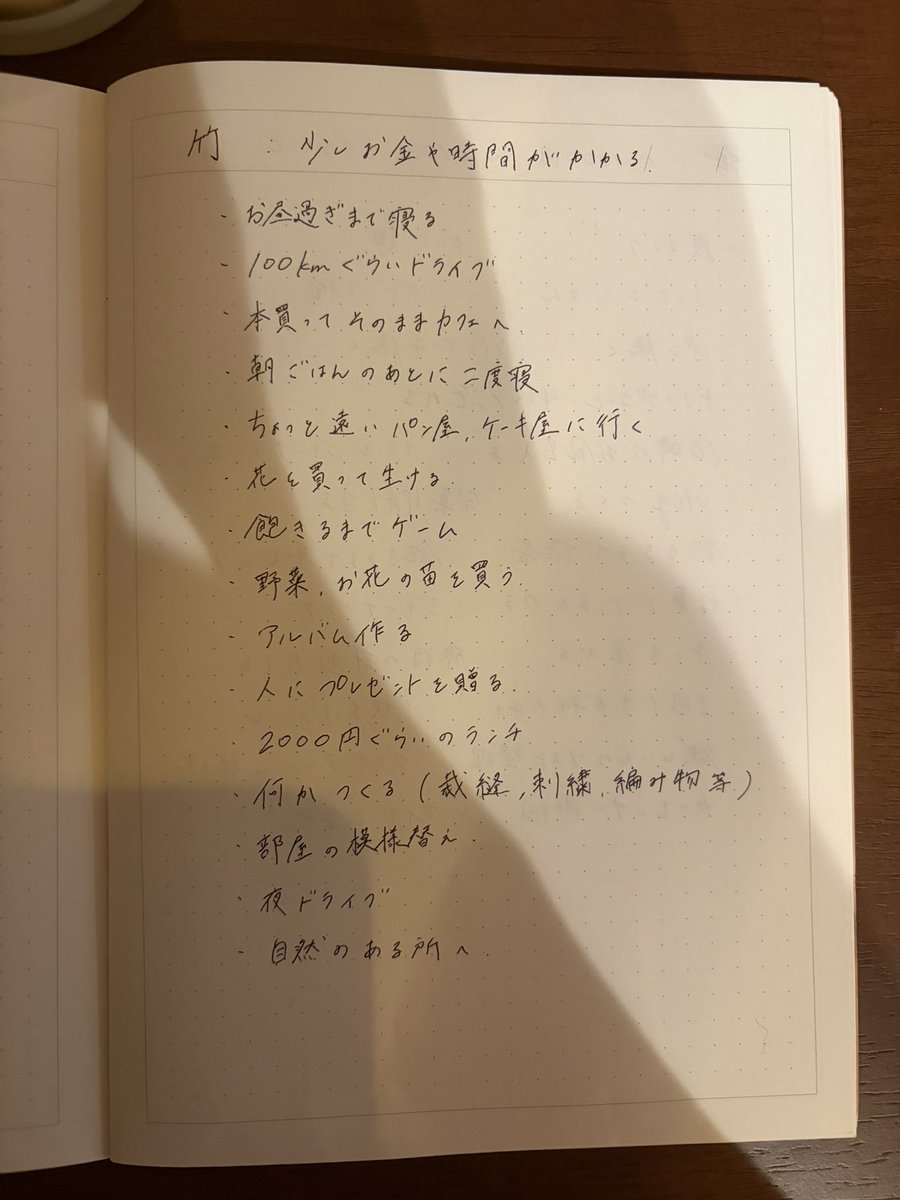 竹 : 少しお金や時間がかかる!
・お昼過ぎまで寝る
・100kmぐらいドライブ
・本買ってそのままカフェへ
・朝ごはんのあとに二度寝
・ちょっと遠いパン屋、ケーキ屋に行く
・花を買って生ける
・飽きるまでゲーム
・野菜、お花の苗を買う
・アルバム作る
・人にプレゼントを贈る
・2000円ぐらいのランチ
・何かつくる(裁縫、刺繍、編み物等)
・部屋の模様替え
・夜ドライブ
・自然のある所へ